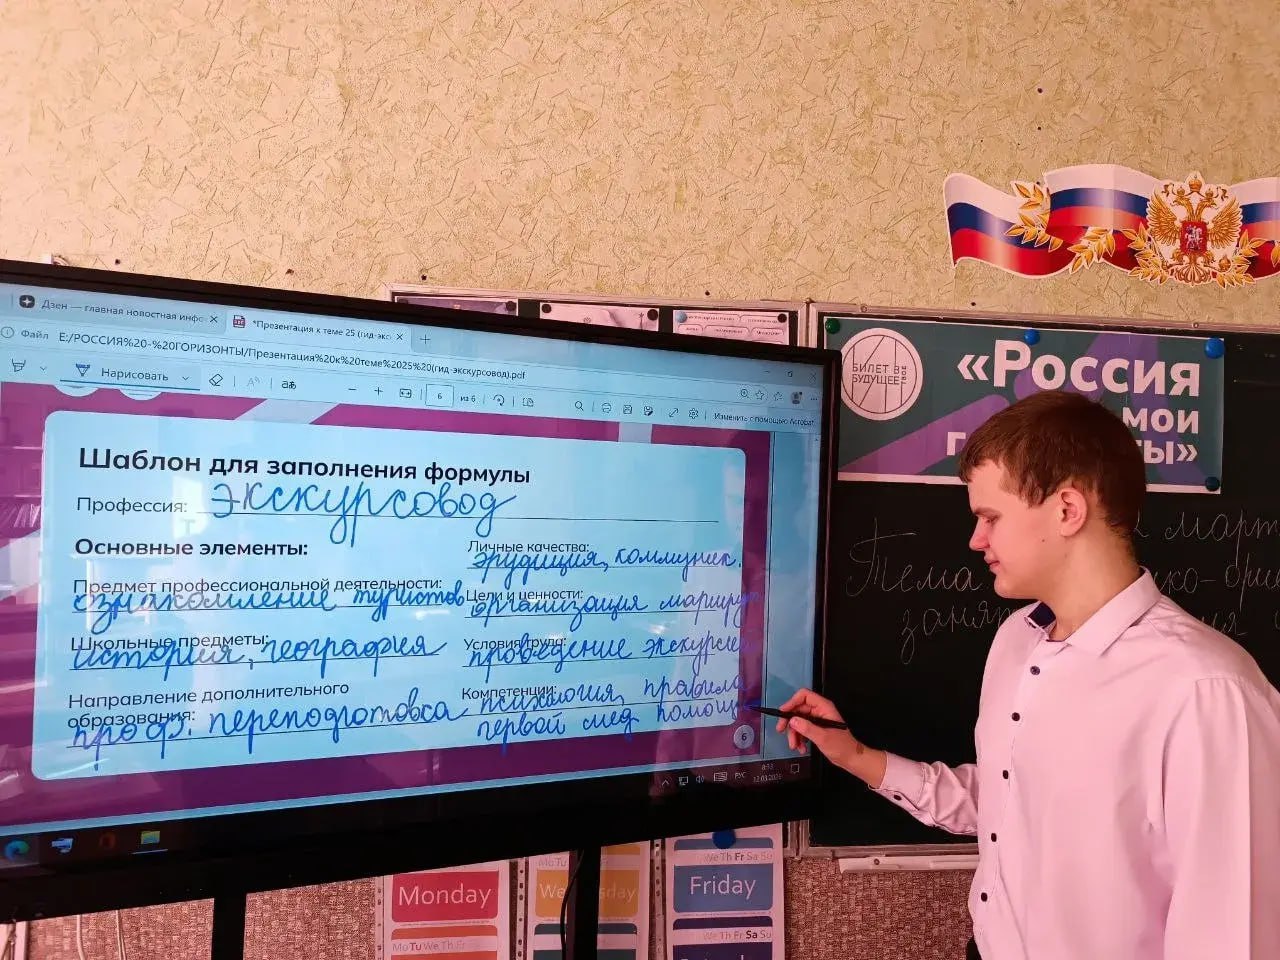 Дзен — главная новостная инфо
*Презентация к теме 25 (гид-экс
Файл E:/РОССИЯ%20-%20ГОРИЗОНТЫ/Презентация%20к%20теме%2025%20(гид-экскурсовод).pdf
Нарисовать
6 из 6
Изменить с помощью Acrobat
Шаблон для заполнения формулы
Профессия: экскурсовод
Основные элементы:
Предмет профессиональной деятельности:
ознакомление туристов
Школьные предметы:
история, география
Направление дополнительного
образования:
проф. переподготовка
Личные качества:
эрудиция, коммуник.
Цели и ценности:
организация маршрут
Условия труда:
проведение экскурсий
Компетенции:
психология, правила
первой мед помощи
6
РУС
БИЛЕТ В
БУДУЩЕЕ
«Россия
мои
г ты»
март
Тема
заня
Monday
Mo Tu We Th Fr
We sday
Friday
We Th Fr Sa Su
We Th Fr Sa Su